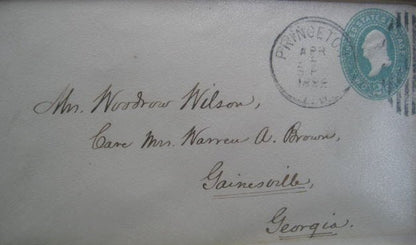 PRINCETON
APR
STATES
Mrs. Woodrow Wilson,
Care Mrs. Warren A. Brown,
Gainesville,
Georgia.